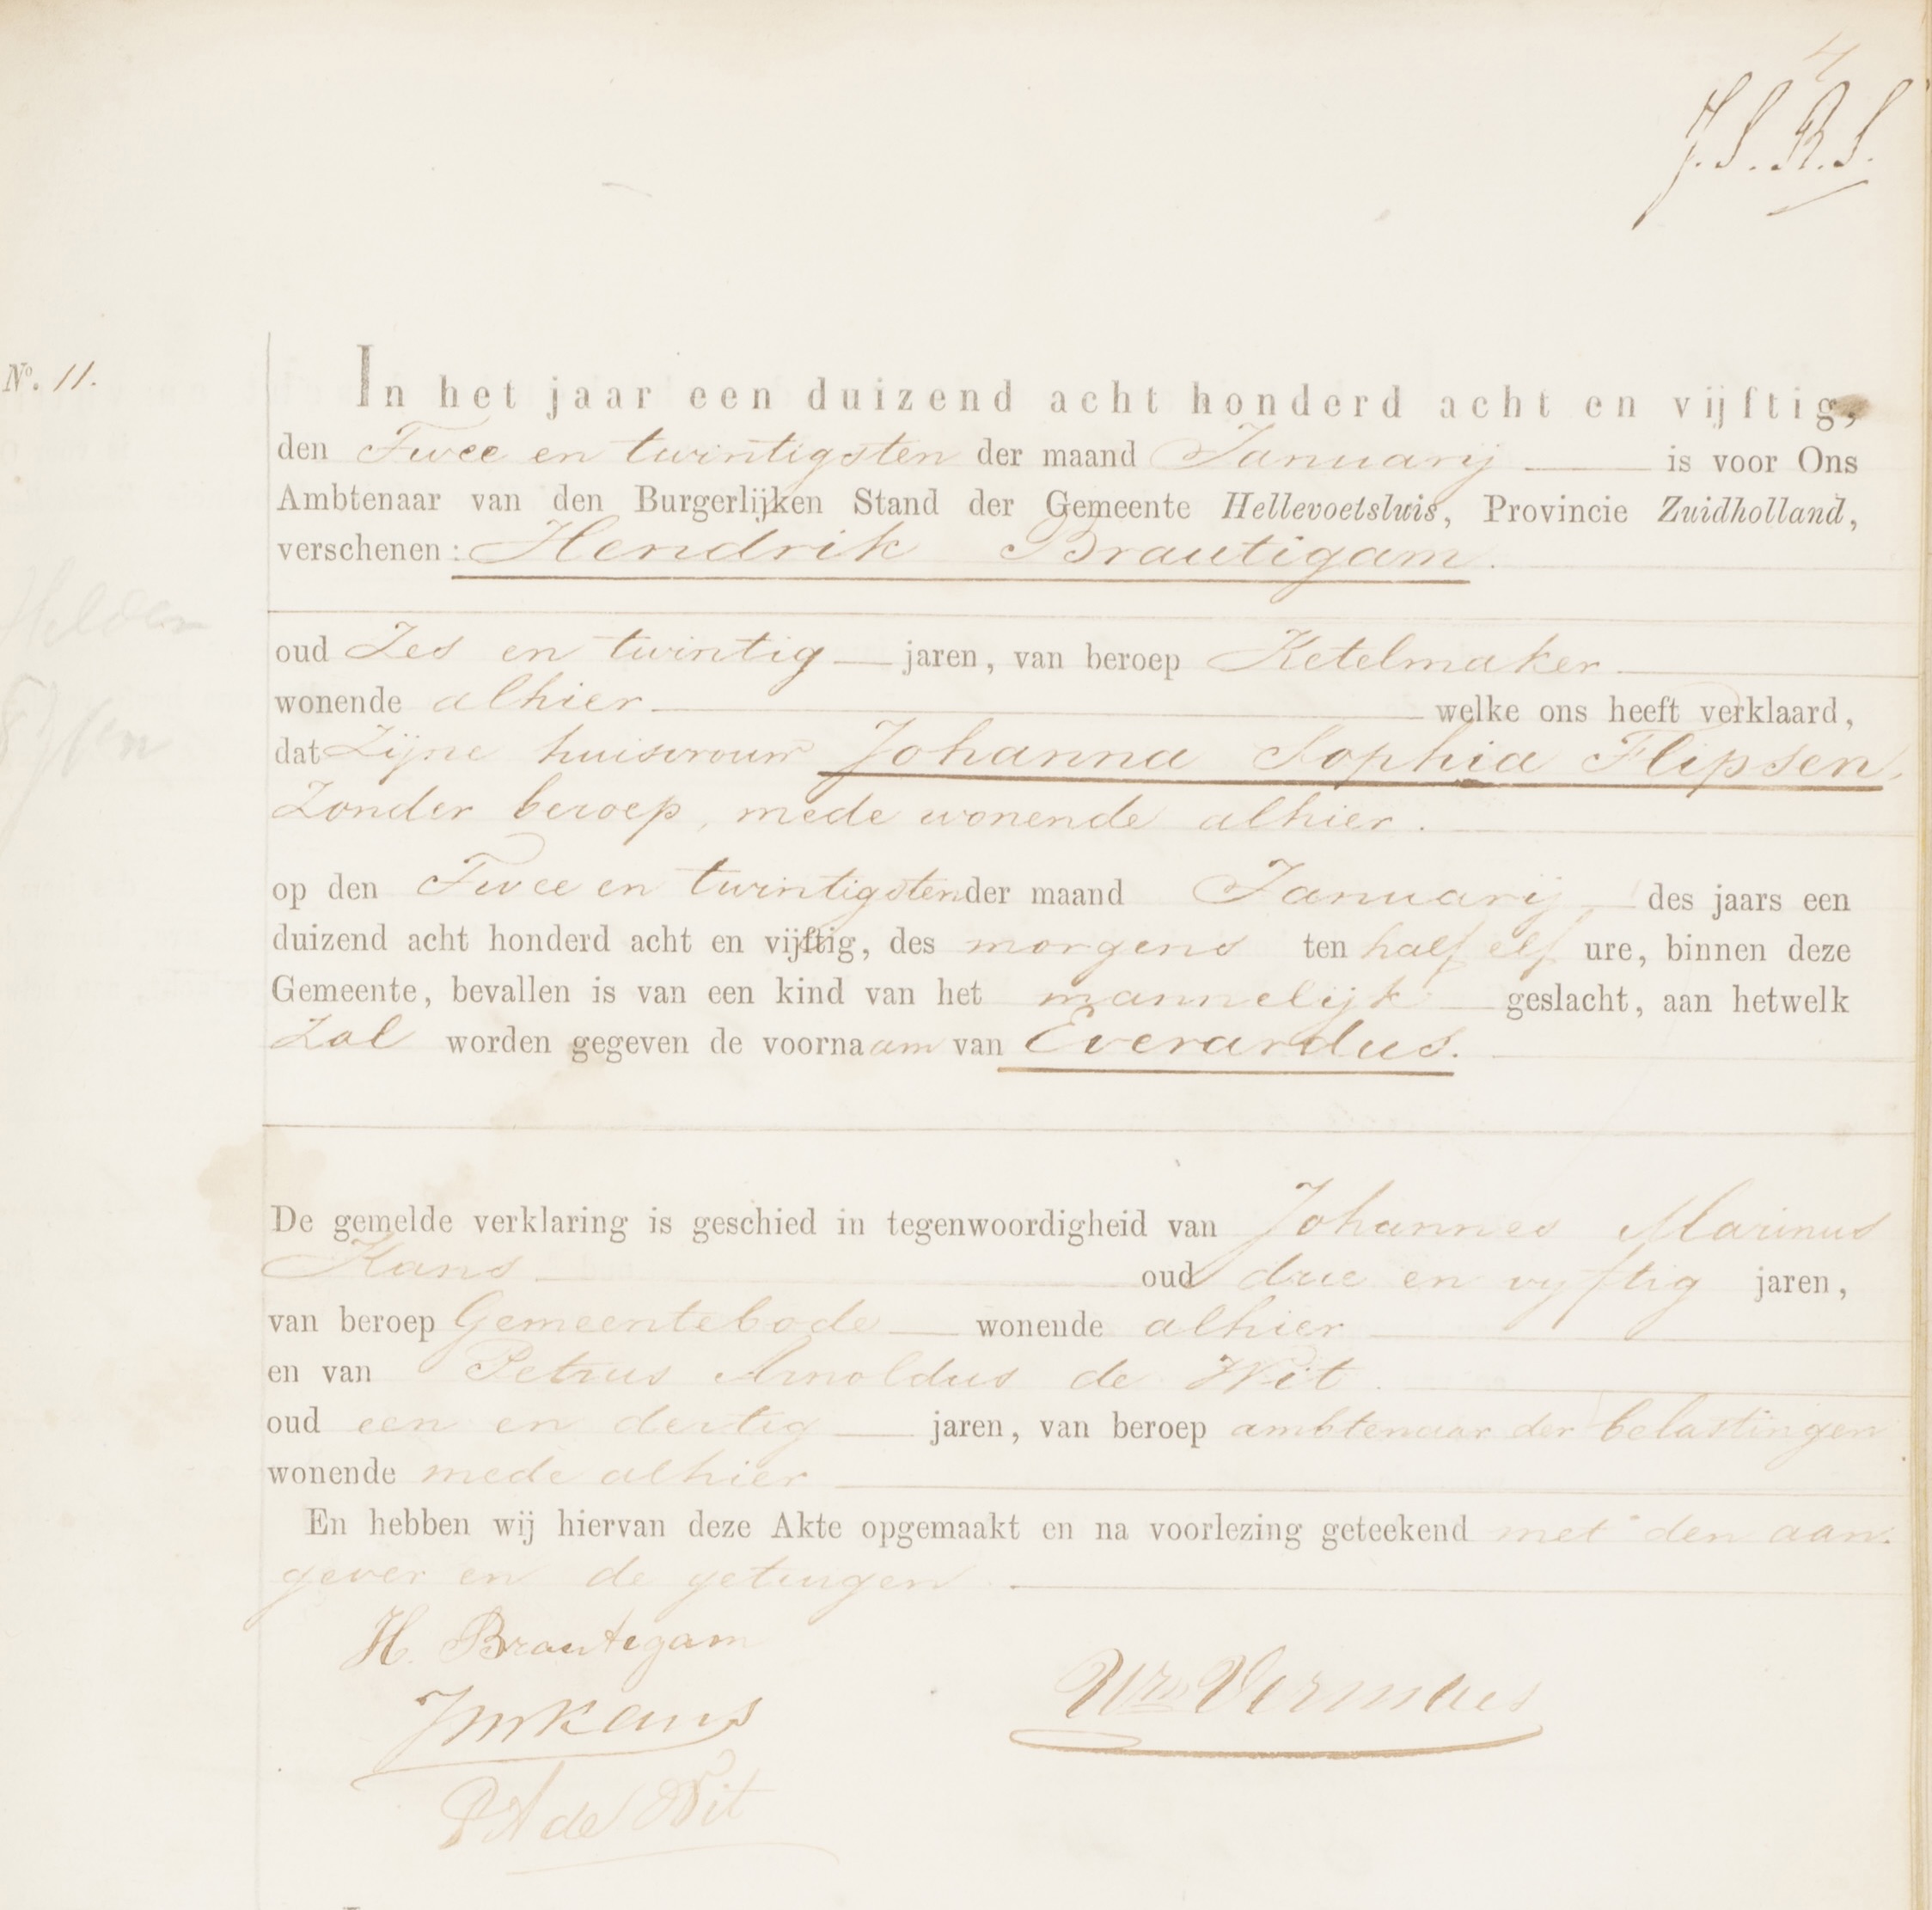 4
J.S.R.S.
No. 11.
In het jaar een duizend acht honderd acht en vijftig,
den Twee en twintigsten der maand Januarij is voor Ons
Ambtenaar van den Burgerlijken Stand der Gemeente Hellevoetsluis, Provincie Zuidholland,
verschenen: Hendrik Brautigam.
oud Zes en twintig jaren, van beroep Ketelmaker
wonende alhier welke ons heeft verklaard,
dat Zijne huisvrouw Johanna Sophia Flipsen,
Zonder beroep, mede wonende alhier.
op den Twee en twintigsten der maand Januarij des jaars een
duizend acht honderd acht en vijftig, des morgens ten half elf ure, binnen deze
Gemeente, bevallen is van een kind van het mannelijk geslacht, aan hetwelk
Zal worden gegeven de voornaam van Everardus.
De gemelde verklaring is geschied in tegenwoordigheid van Johannes Marinus
Kans oud drie en vyftig jaren,
van beroep Gemeentebode wonende alhier
en van Petrus Arnoldus de Wit.
oud een en dertig jaren, van beroep ambtenaar der belastingen
wonende mede alhier
En hebben wij hiervan deze Akte opgemaakt en na voorlezing geteekend met den aan-
gever en de getuigen.
H. Brautigam
JMKans
Wm Vermaes
PA de Wit